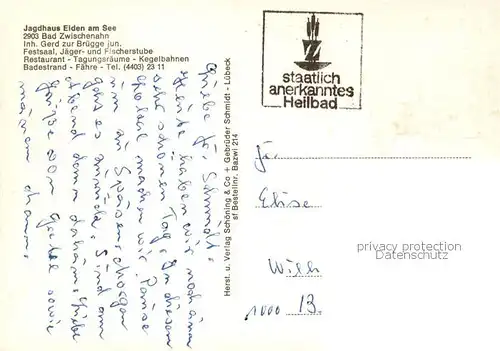 Jagdhaus Eiden am See
2903 Bad Zwischenahn
Inh. Gerd zur Brügge jun.
Festsaal, Jäger- und Fischerstube
Restaurant - Tagungsräume - Kegelbahnen
Badestrand - Fähre - Tel. (4403) 23 11
staatlich
anerkanntes
Heilbad
Herst. u. Verlag Schöning & Co + Gebrüder Schmidt - Lübeck
sf Bestellnr. Bazwi 214
Liebe Fr. Schmidt,
Heute haben wir noch einen
sehr schönen Tag. In diesem
machen wir Pause
am
geht es zurück. Sind am
Abend dann daheim. Liebe
Grüße von sowie
meinem
Fr.
Elise
privacy protection
Datenschutz
1000 13